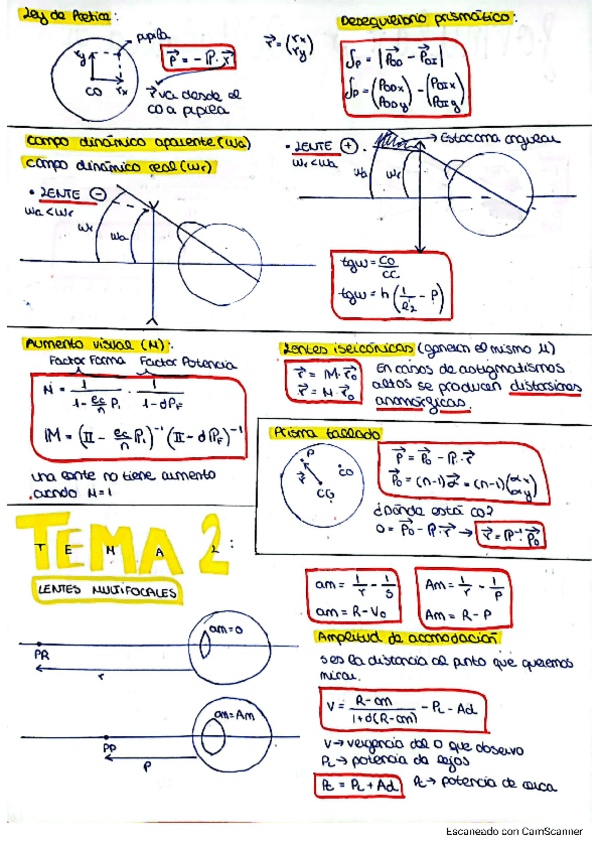 Ley de Prentice:
pupila
ry
rx
CO
r⃗ = (rx ry)
p⃗ = -ℙ·r⃗
r⃗ va desde el
CO a pupila
Desequilibrio prismático:
δp = |P⃗OD - P⃗OI|
δp = (POD x POD y) - (POI x POI y)
Campo dinámico aparente (wa)
Campo dinámico real (wr)
• LENTE ⊖
wa < wr
wr
wa
• LENTE ⊕
wr < wa
Escotoma angular
wa
wr
tgw = CO/CC
tgw = h (1/l'2 - P)
Aumento visual (M):
Factor Forma Factor Potencia
M = 1/(1 - ec/n P1) · 1/(1 - dPF)
𝕄 = (𝕀 - ec/n ℙ1)⁻¹ (𝕀 - dℙF)⁻¹
una lente no tiene aumento
cuando M=1
Lentes iseicónicas (generan el mismo M)
r⃗ = 𝕄·r⃗0
r⃗ = M·r⃗0
En casos de astigmatismos
altos se producen distorsiones
anamórficas.
Prisma tallado
P
r⃗
CO
CG
P⃗ = P⃗0 - ℙ·r⃗
P⃗0 = (n-1)α⃗ = (n-1)(αx αy)
¿dónde está CO?
0 = P⃗0 - ℙ·r⃗ → r⃗ = ℙ⁻¹·P⃗0
TEMA 2:
T E M A 2
LENTES MULTIFOCALES
am=0
PR
r
am=Am
PP
P
am = 1/r - 1/s
am = R - V0
Am = 1/r - 1/p
Am = R - P
Amplitud de acomodación
s es la distancia al punto que queremos
mirar.
V = (R-am)/(1+d(R-am)) - PL - Ad
V→ vergencia del O que observo
PL→ potencia de lejos
PC = PL + Ad
PC→ potencia de cerca
Escaneado con CamScanner